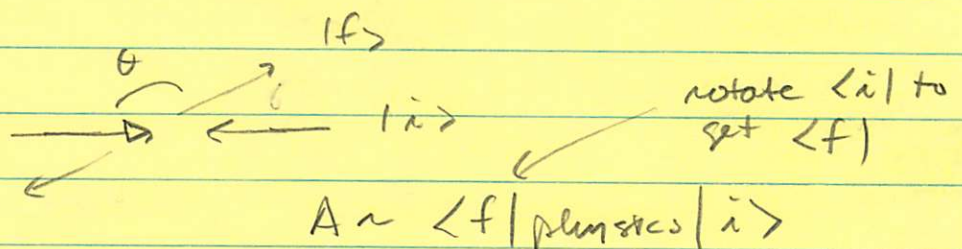 |f>
θ
|i>
rotate <i| to
get <f|
A ~ <f|physics|i>